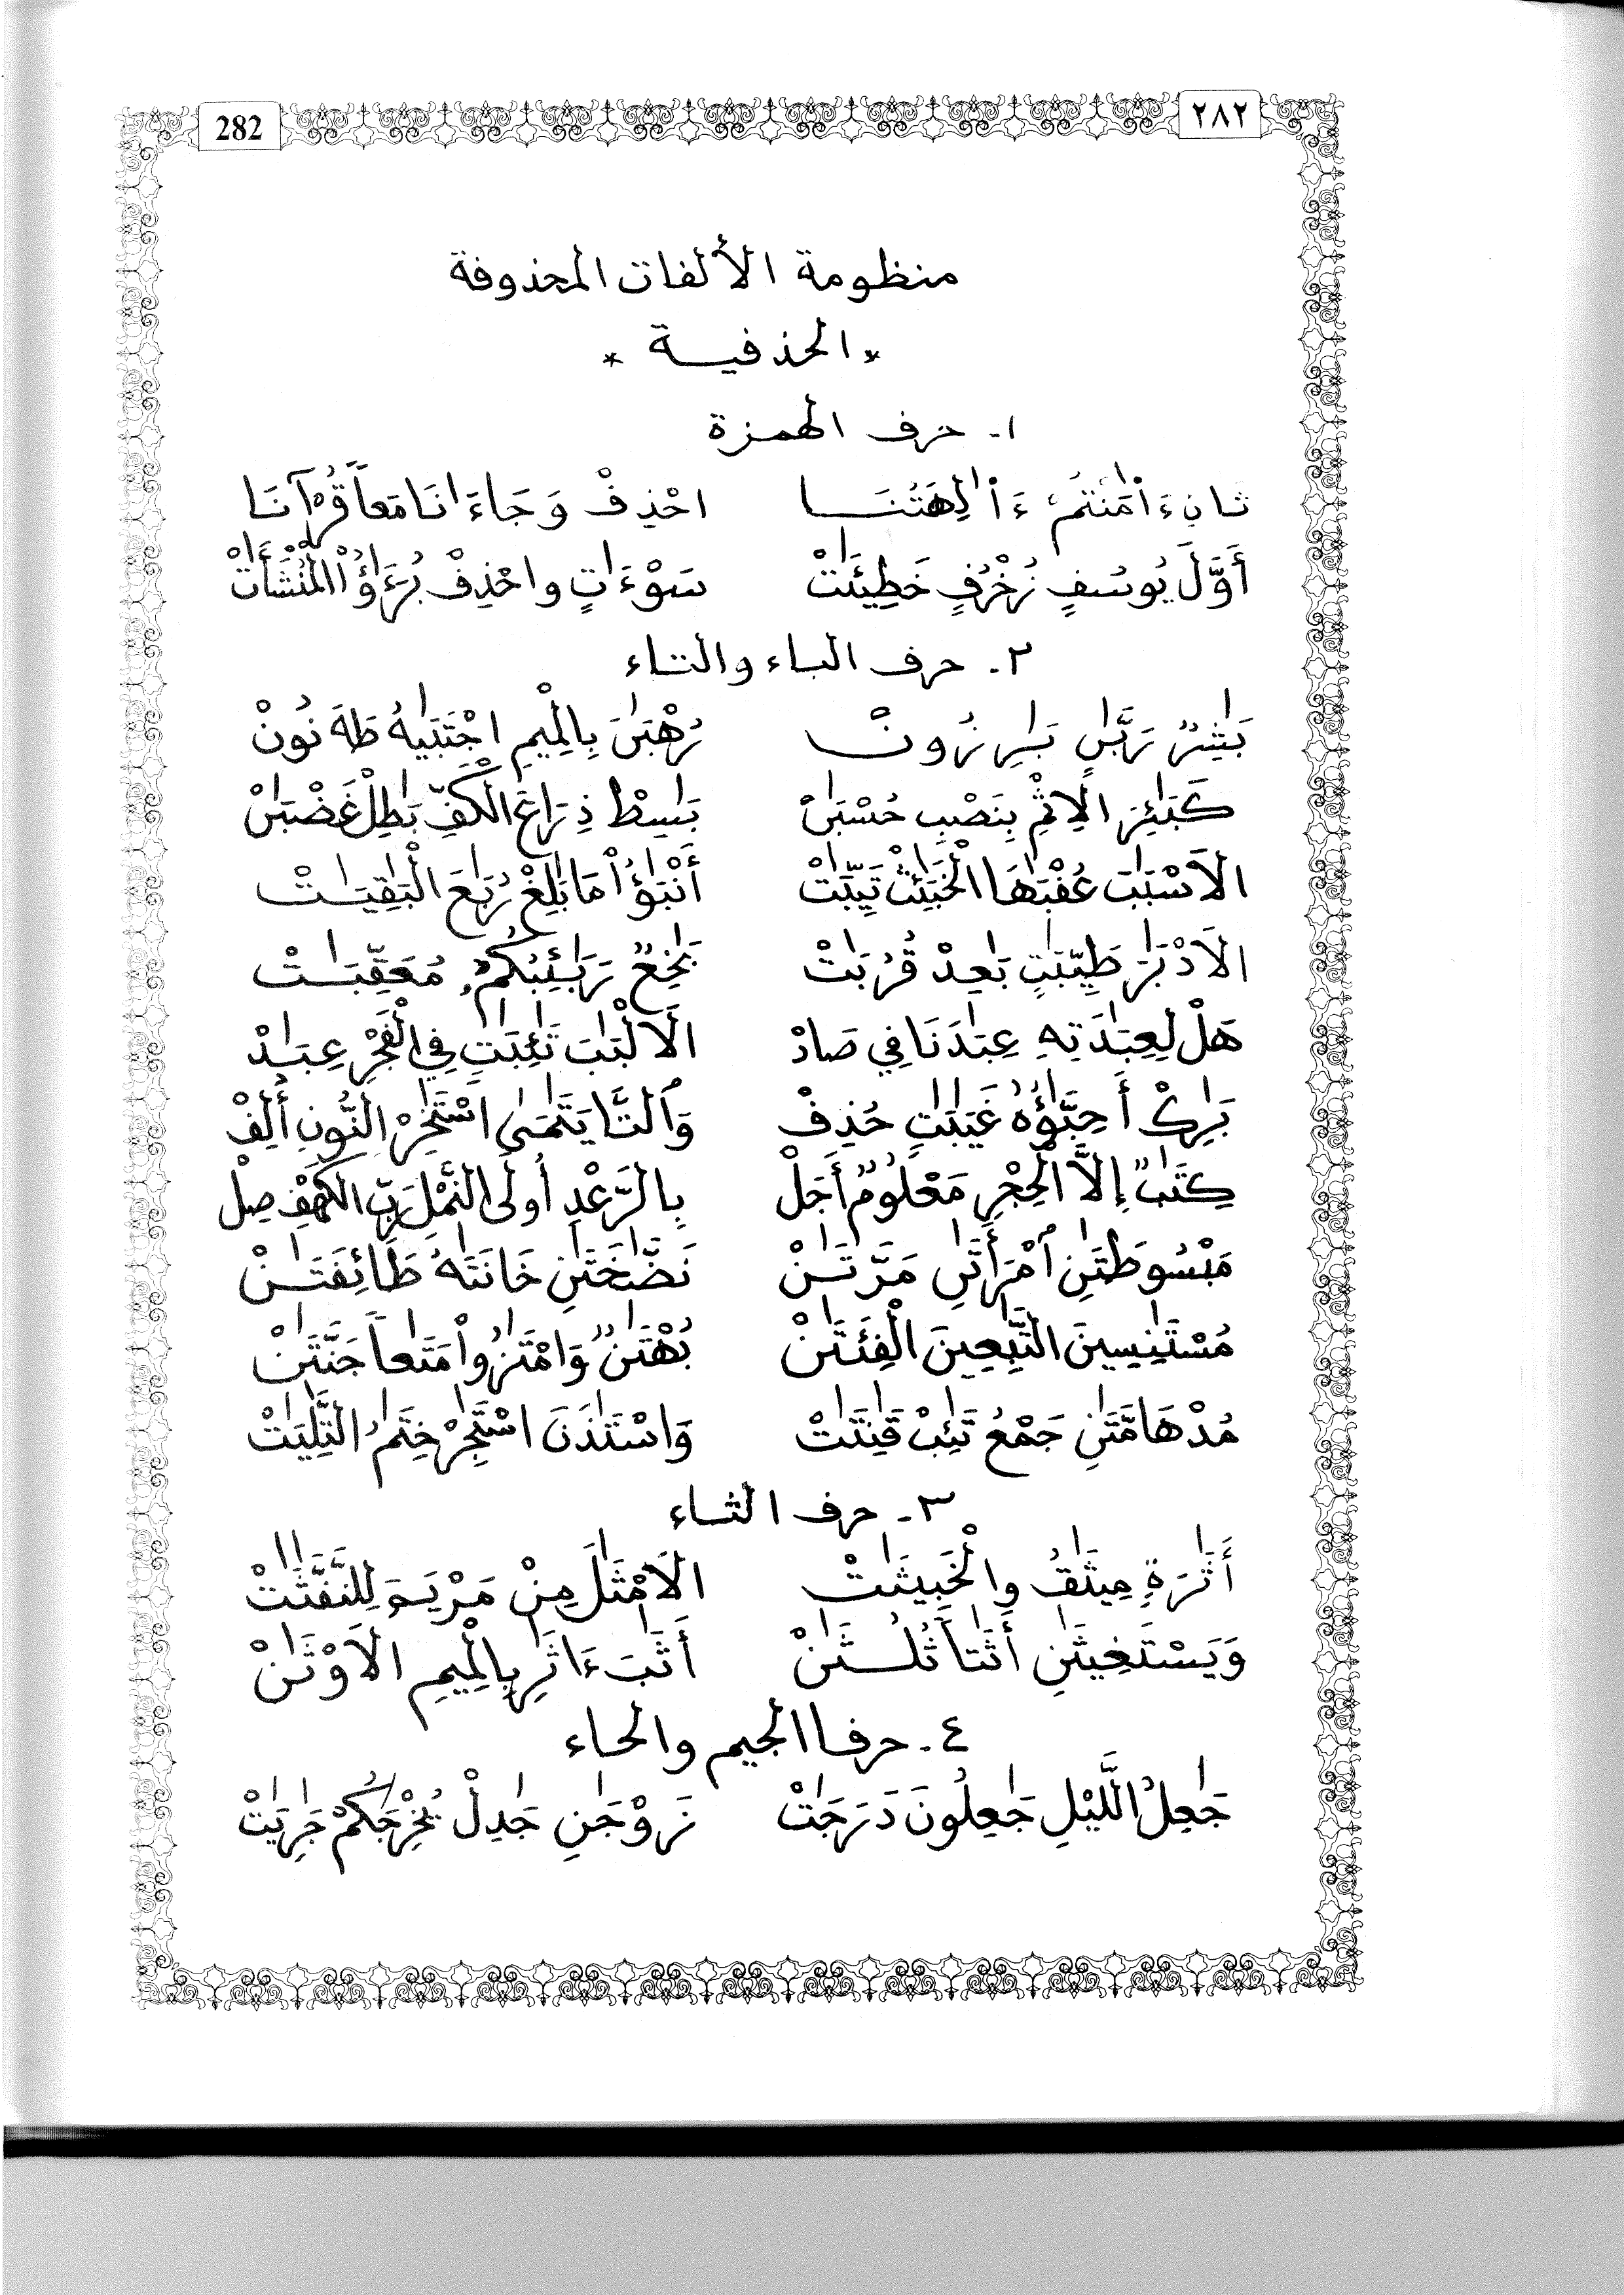 282 ٢٨٢
منظومة الألفات المحذوفة
* الحذفية *
١- حرف الهمزة
ثانِ ءَاٰمَنتُمُ ءَاٰلِهَتُنَـــا احْذِفْ وَجَاءَانَا مَعاً قُرْآنَا
أَوَّلَ يُوسُفٍ زُخْرُفٍ خَطِيـَٰٔتْ سَوْءَٰتٍ واحْذِفْ بُرَءَٰٓؤُاْ الْمُنْشَـَٰٔاتْ
٢- حرف الباء والتاء
بَٰشِرُ رَبَّٰنِ بَٰرِزُونْ رُهْبَٰنَ بِالْمِيمِ اجْتَبَٰيهُ طَهَ نُونْ
كَبَٰئِرَ الاِثْمِ بِنَصْبِ حُسْبَٰنْ بَٰسِطْ ذِرَاعَ الْكَفِّ بَٰطِلْ غَضْبَٰنْ
الاَسْبَٰبَ عُقْبَٰهَا الْخَبَٰئِثْ ثَيِّبَٰتْ أَنْبَٰٓؤُاْ مَا بَٰلِغْ رُبَٰعَ الْبَٰقِيَـٰتْ
الاَدْبَٰرَ طَيِّبَٰتٍ بَٰعِدْ قُرُبَٰتْ بَٰخِعٌ رَبَٰئِبُكُمُ مُعَقِّبَـٰتْ
هَلْ لِعِبَٰدَتِهِ عِبَٰدَنَا فِي صَادْ الَالْبَٰبَ تَٰئِبَٰتٍ فِي الْفَجْرِ عِبَـٰدْ
بَٰرِكْ أَحِبَّٰٓؤُهُ غَيَٰبَٰتِ حُذِفْ وَالتَّا يَتَٰمَىٰ اسْتَٰخِرْ النُّونِ أُلِفْ
كِتَٰبٌ إِلاَّ الْحِجْرِ مَعْلُومٌ أَجَلْ بِالرَّعْدِ أُولَى النَّمْلِ رَبِّ الْكَهْفِ صِلْ
مَبْسُوطَتَٰنِ اْمْرَأَتَٰنِ مَرَّتَـٰنْ نَضَّاخَتَٰنِ خَانَتَٰهُ طَائِفَتَـٰنْ
مُسْتَٰنِسِينَ التَّٰبِعِينَ الْفِئَتَٰنْ بُهْتَٰنٌ وَامْتَٰزُواْ مَتَٰعاً جَنَّتَٰنْ
مُدْهَامَّتَٰنِ جَمْعُ تَٰئِبْ قَٰنِتَٰتْ وَاسْتَٰذَنَ اسْتَٰجِرْ خِتَٰمُ التَّٰلِيَٰتْ
٣- حرف الثاء
أَثَٰرَةٍ مِيثَٰقُ والْخَبِيثَٰتْ الاَمْثَٰلَ مِنْ مَرْيَمَ لِلنَّفَّٰثَٰتْ
وَيَسْتَغِيثَٰنِ أَثَٰثاً ثُلُـثَٰنْ أَثَٰبَ ءَاثَٰرِ بِالْمِيمِ الاَوْثَٰنْ
٤- حرفا الجيم والحاء
جَٰعِلُ الَّليْلِ جَٰعِلُونَ دَرَجَٰتْ زَوْجَٰنِ جَٰدِلْ يُخْرِجَٰكُمْ جَٰرِيَٰتْ